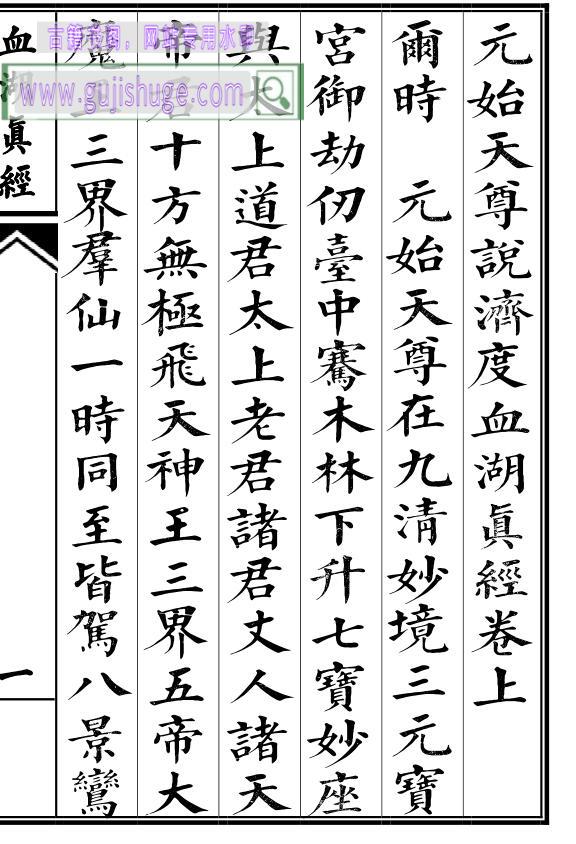 元始天尊說濟度血湖眞經卷上
爾時　元始天尊在九清妙境三元寶
宮御劫仞臺中騫木林下升七寶妙座
與太上道君太上老君諸君丈人諸天
帝君十方無極飛天神王三界五帝大
魔王三界羣仙一時同至皆駕八景鸞
血湖眞經
一
古籍书阁，网站专用水印
www.gujishuge.com